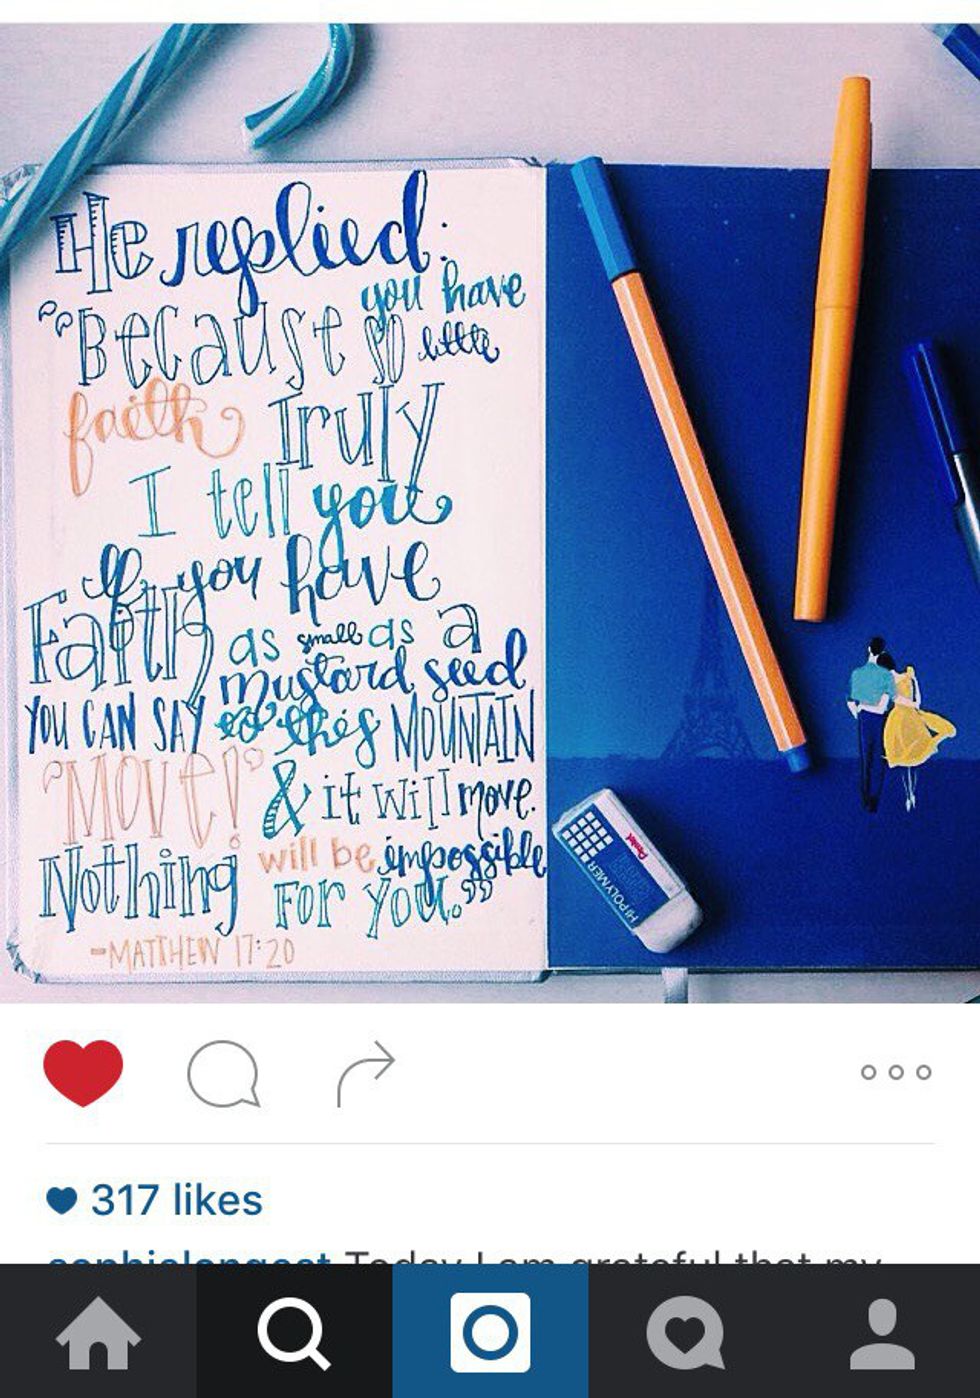 He replied:
"Because you have
so little
faith Truly
I tell you
If you have
Faith as small as a
mustard seed
YOU CAN SAY to this MOUNTAIN
"Move!" & it will move.
Nothing will be impossible
FOR YOU."
-MATTHEW 17:20
Pentel
HI-POLYMER
317 likes
sophielongest Today I am grateful that my